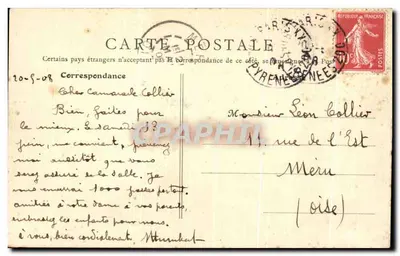 CARTE POSTALE
Certains pays étrangers n'acceptant pas la correspondance de ce côté, se
Correspondance
20-5-08
Cher Camarade Collier
Bien, faites pour
le mieux. Le samedi 13
juin, me convient, prévenez
moi aussitôt que vous
serez assuré de la salle. Je
vous 1000 postes partout.
amitiés à votre dame à vos parents,
embrassez les enfants pour nous,
à vous, bien cordialement
Monsieur Léon Collier
11 rue de l'Est
Méru
(oise)
REPUBLIQUE FRANÇAISE
POSTES
PYRENEES